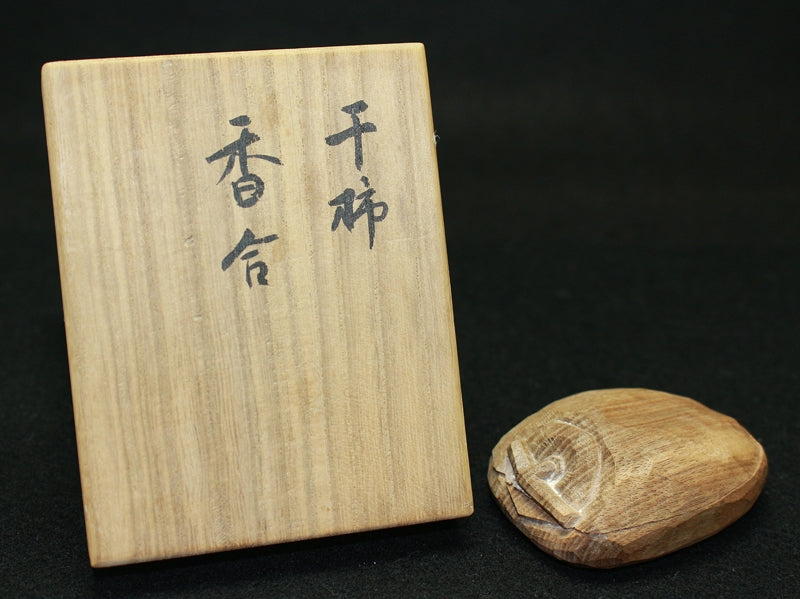 干柿
香合